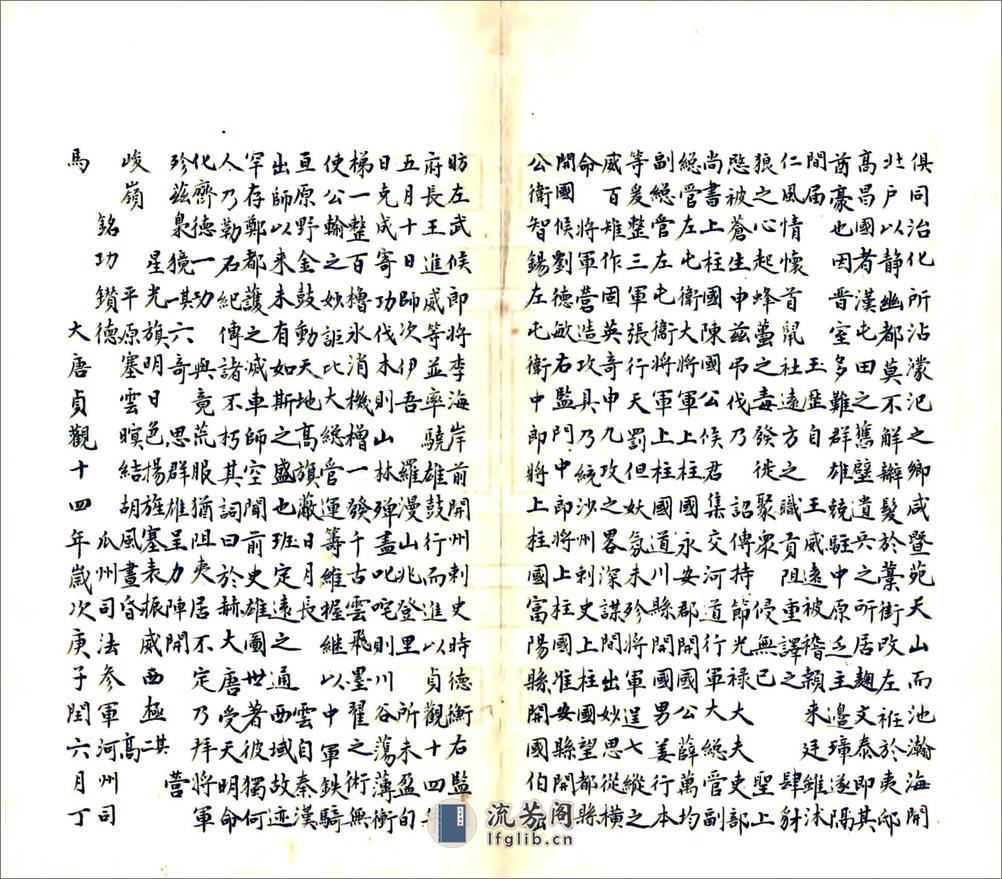 俱同治化所沾濛汜之鄉咸暨苑天山而池瀚海開
北戶以靜幽都莫不解辮髮於藁街改左衽於夷邸
高昌國者漢屯田之舊壁遺兵之所居麴文泰即其
酋豪也因晉室多難群雄競駐中原乏主邊璋遂隔
間屆玉歷自王威遠被稽賴來廷雖沐
仁風情懷首鼠社遠方之職貢阻重譯之肆豺
狼之心起蜂蠆之毒發徒聚衆侵無已聖上
愍被蒼生申茲吊伐乃詔傳持節光祿大夫吏部
尚書上柱國陳國公候君集交河道行軍大總管副
總管左屯衛大將軍上柱國永安郡開國公薛萬均
副總管左屯衛將軍上柱國道川縣開國男姜行本
等爰整三軍張行天罰但妖氛未殄將軍逞七縱之
威百雉作固英奇申九攻之畧深謀間出妙思縱橫
命將軍營造攻具乃統沙州刺史上柱國望都縣
開國候劉德敏右監門中郎將上柱國淮安國縣開
公衛智錫左屯衛中郎將上柱國富陽縣開國伯
昉左武候郎將李海岸前開州刺史時德衡右監
府長王進威等並率驍雄鼓行而進以貞觀十四
五月十日師次伊吾羅漫山北登里所未盈旬
日克成寄功伐木則山林殫盡叱咤則川谷蕩薄衝
梯一整百櫓氷消機檜一發千古雲飛墨翟之術無
使公輸之妙詎比大總管運籌維握繼以中軍鐵騎
亘原野金鼓動天地高旗蔽日月長雲自秦漢
出師以來未有如斯之盛也班定遠之通西域故迹
罕存鄭都護之滅車師空聞前史雄圖世著彼獨何
人乃勒石紀傳諸不朽其詞曰於赫大唐受天明命
化齊德一功與竟荒服猶阻夷居不定乃拜將軍
珍茲梟獍其六奇思群雄呈力陣開營
星光旗明日色揚旌塞表振威西極其二
峻嶺平原塞雲暝結胡風晝昏高
銘功鑽德瓜州司法參軍河州司
馬大唐貞觀十四年歲次庚子閏六月丁
流芳阁
lfglib.cn